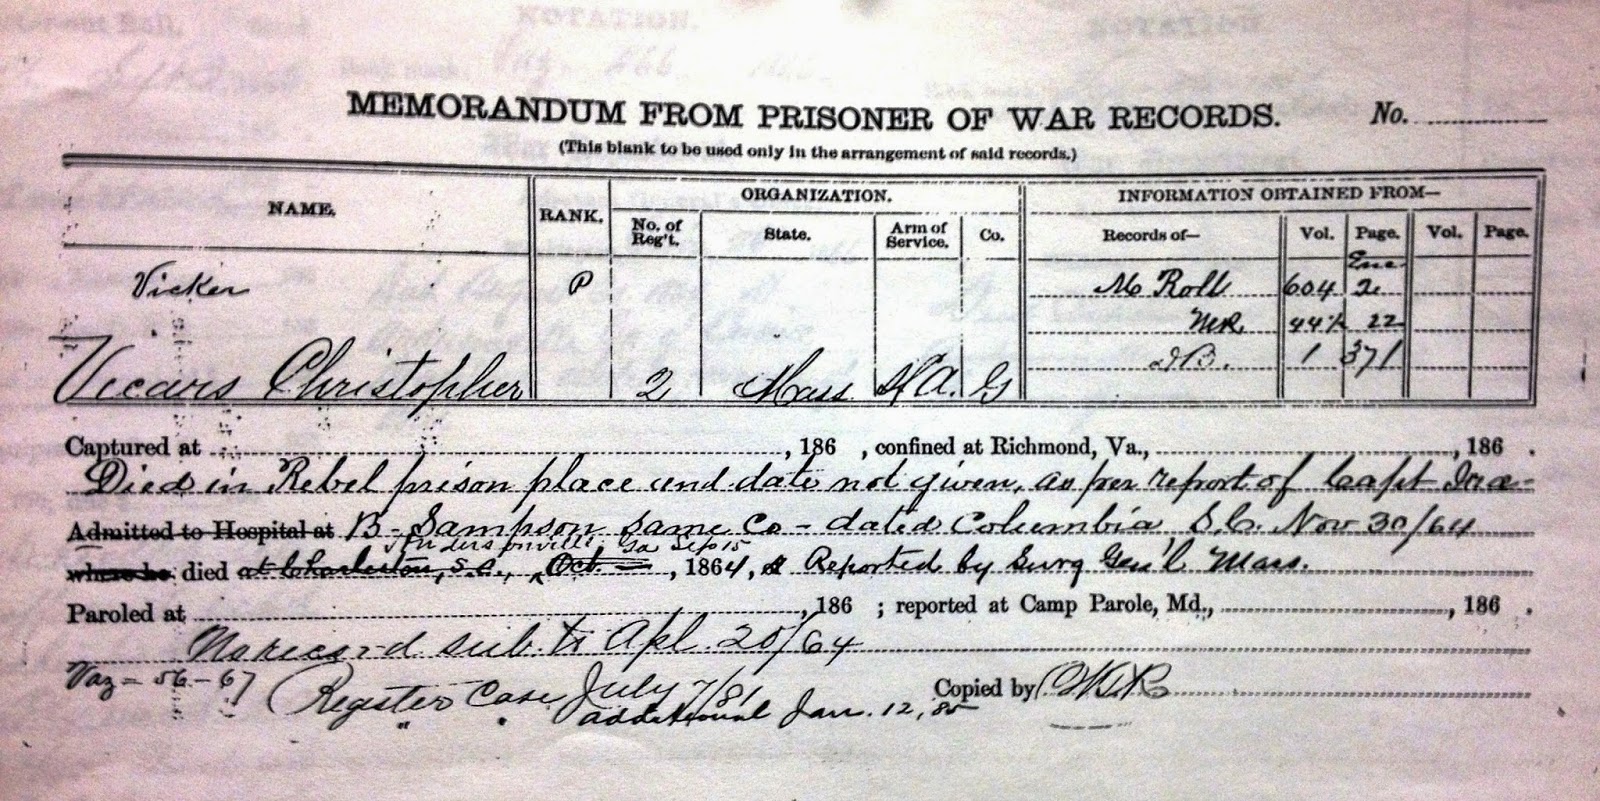 NOTATION.
NOTATION
MEMORANDUM FROM PRISONER OF WAR RECORDS. No.
(This blank to be used only in the arrangement of said records.)
NAME. RANK. ORGANIZATION. INFORMATION OBTAINED FROM—
No. of Reg't. State. Arm of Service. Co. Records of— Vol. Page. Vol. Page.
Vicker P M Roll 604 2
MR. 22
1 371
Vicars Christopher 2 Mass H A. G
Captured at , 186 , confined at Richmond, Va., , 186 .
Died in Rebel prison place and date not given, as per report of Capt Ira
Admitted to Hospital at B. Sampson same Co - dated Columbia S.C. Nov 30/64
Andersonville Ga Sep 15
where he died at Charleston, S.C., Oct. , 1864, Reported by Surg Gen'l Mass.
Paroled at , 186 ; reported at Camp Parole, Md., , 186 .
No record sub. to Apl. 20/64
Vaz - 56 - 67 Register Case July 7/81 Copied by
" " additional Jan. 12, 85